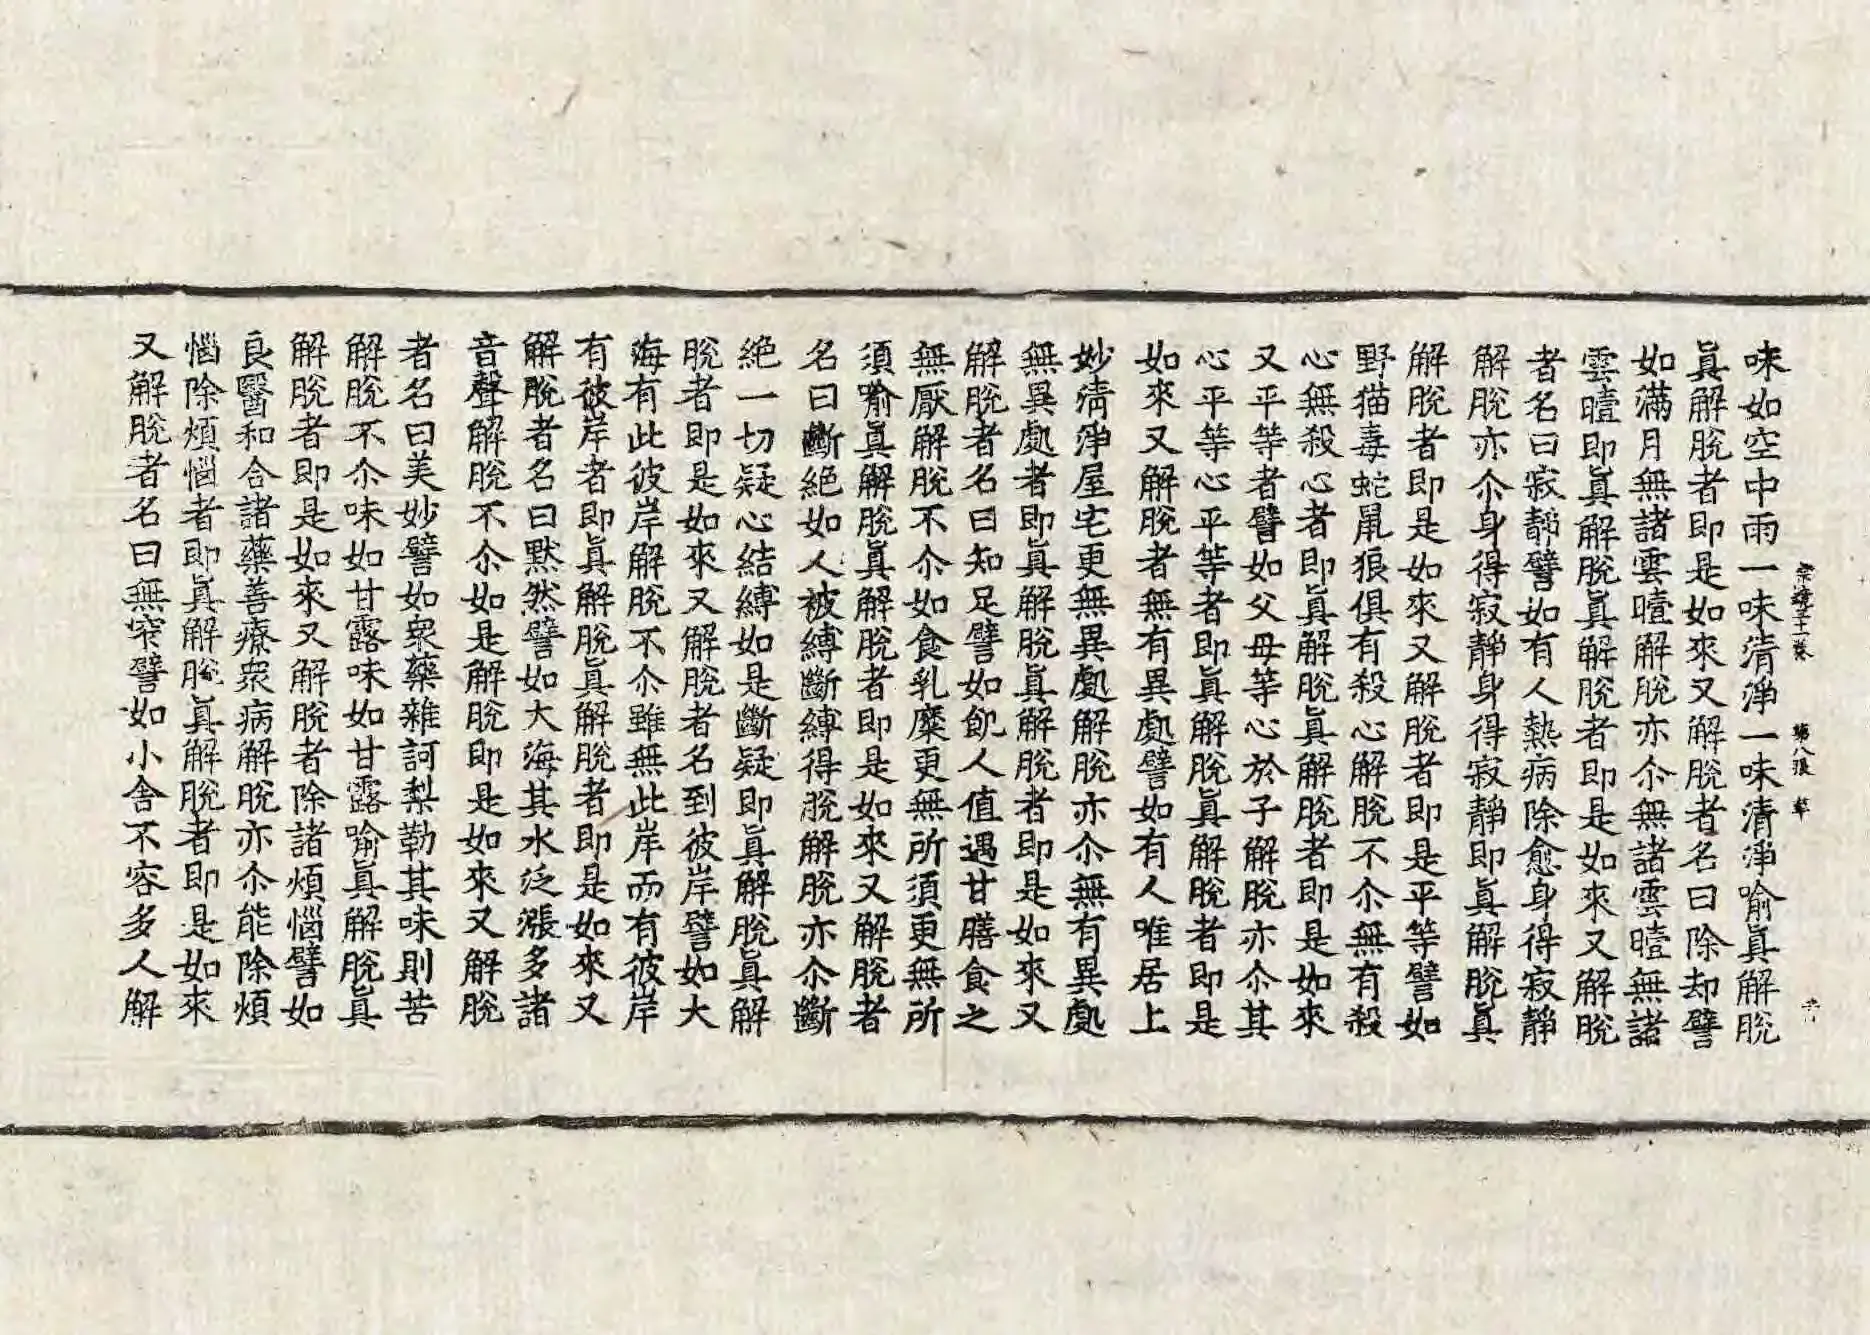 第八張
味如空中雨一味清淨一味清淨喻眞解脫
眞解脫者即是如來又解脫者名曰除却譬
如滿月無諸雲曀解脫亦尒無諸雲曀無諸
雲曀即眞解脫眞解脫者即是如來又解脫
者名曰寂靜譬如有人熱病除愈身得寂靜
解脫亦尒身得寂靜身得寂靜即眞解脫眞
解脫者即是如來又解脫者即是平等譬如
野猫毒蛇鼠狼俱有殺心解脫不尒無有殺
心無殺心者即眞解脫眞解脫者即是如來
又平等者譬如父母等心於子解脫亦尒其
心平等心平等者即眞解脫眞解脫者即是
如來又解脫者無有異處譬如有人唯居上
妙清淨屋宅更無異處解脫亦尒無有異處
無異處者即眞解脫眞解脫者即是如來又
解脫者名曰知足譬如飢人值遇甘膳食之
無厭解脫不尒如食乳糜更無所須更無所
須喻眞解脫眞解脫者即是如來又解脫者
名曰斷絕如人被縛斷縛得脫解脫亦尒斷
絕一切疑心結縛如是斷疑即眞解脫眞解
脫者即是如來又解脫者名到彼岸譬如大
海有此彼岸解脫不尒雖無此岸而有彼岸
有彼岸者即眞解脫眞解脫者即是如來又
解脫者名曰默然譬如大海其水泛漲多諸
音聲解脫不尒如是解脫即是如來又解脫
者名曰美妙譬如衆藥雜訶梨勒其味則苦
解脫不尒味如甘露味如甘露喻眞解脫眞
解脫者即是如來又解脫者除諸煩惱譬如
良醫和合諸藥善療衆病解脫亦尒能除煩
惱除煩惱者即眞解脫眞解脫者即是如來
又解脫者名曰無窄譬如小舍不容多人解